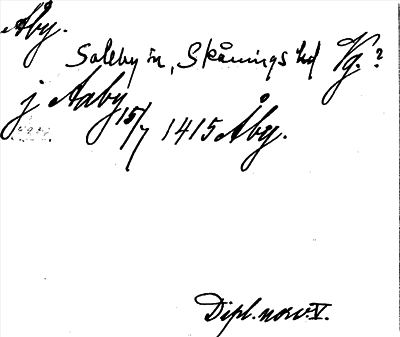 Åby.
Saleby sn, Skånings hd Vg.?
j Aaby 15/7 1415 Åby.
Dipl. norv. V.